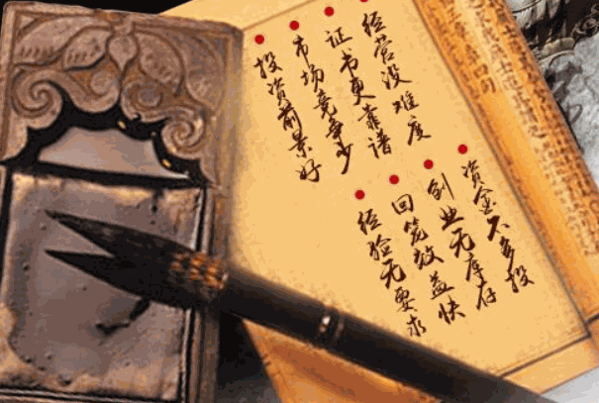 经营没难度
证书更靠谱
市场竞争少
投资前景好
资金不多投
创业无库存
回笼效益快
经验无要求